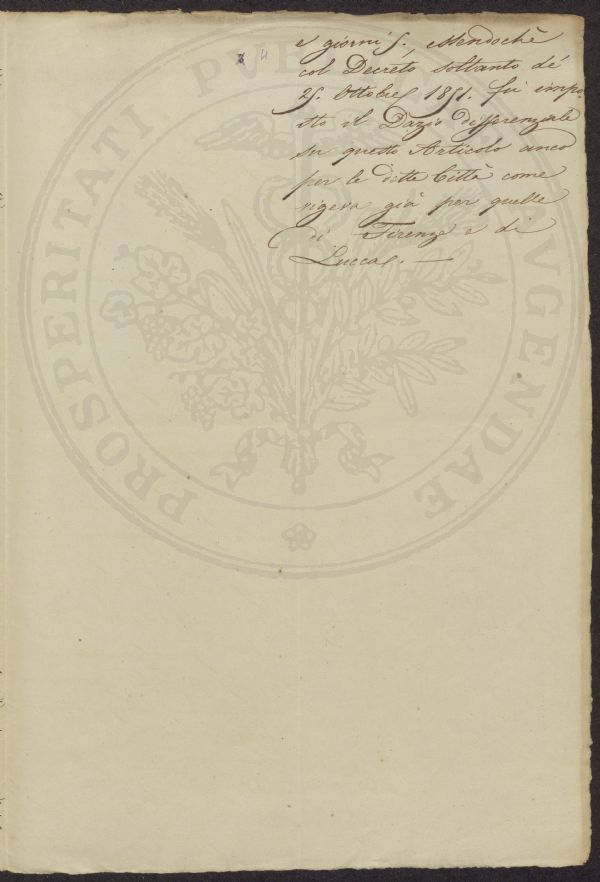 4
e giorni 5., essendochè
col Decreto soltanto dé
25. Ottobre 1851. fu impo-
sto il Dazio differenziale
su questo Articolo anco
per le dette Città come
vigeva già per quelle
di Firenze e di
Lucca. —
PROSPERITATI PVB AVGENDAE